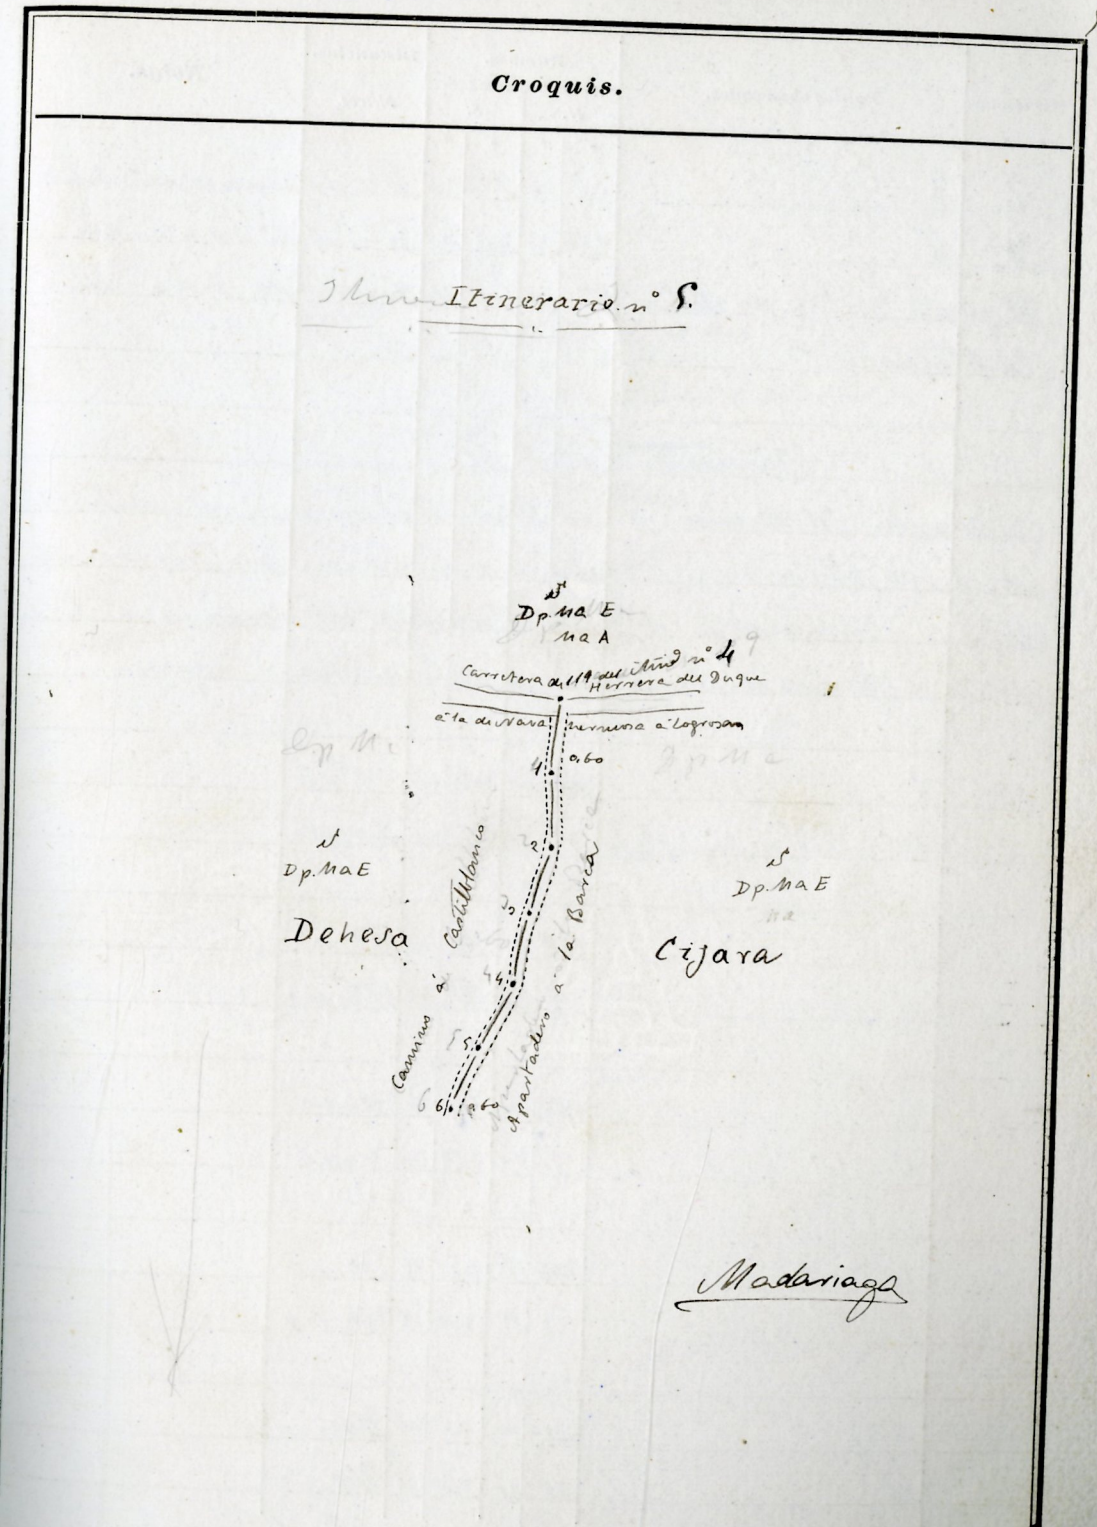 Croquis.
Itinerario nº 5.
Dp. Ma E
Ma A
Carretera de
nº 4
Herrera del Duque
á la de Nava hermosa á Logrosan
0,60
1
2
3
4
5
6
0,60
Camino á Castilblanco
Apartadero á la Barca
Dp. Ma E
Dehesa
Dp. Ma E
Cijara
Madariaga